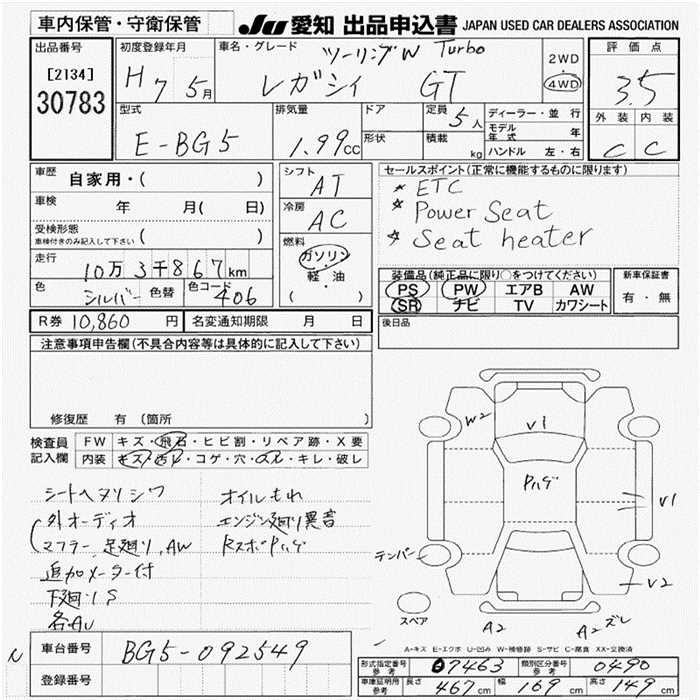 車内保管・守衛保管
JU 愛知 出品申込書 JAPAN USED CAR DEALERS ASSOCIATION
出品番号
[2134]
30783
初度登録年月
H7 5月
車名・グレード
ツーリングW Turbo
レガシィ GT
2WD
4WD
評価点
3.5
外装 内装
C C
型式
E-BG5
排気量
1.99cc
ドア
形状
定員 5人
積載 kg
ディーラー・並行
モデル年式 年
ハンドル 左・右
車歴 自家用・( )
車検 年 月( 日)
受検形態
車検付きのみ記入して下さい ( )
走行
10万3千867km
色 シルバー 色替 色コード 406
シフト AT
冷房 AC
燃料
ガソリン・
軽・油
( )
セールスポイント(正常に機能するものに限ります)
* ETC
* Power Seat
* Seat heater
装備品(純正品に限り○をつけてください)
PS PW エアB AW
SR ナビ TV カワシート
新車保証書
有・無
R券 10,860 円 名変通知期限 月 日
後日品
注意事項申告欄(不具合内容等は具体的に記入して下さい)
修復歴 有(箇所
検査員記入欄
FW キズ・飛石・ヒビ割・リペア跡・X要
内装 キズ・汚れ・コゲ・穴・スレ・キレ・破レ
シートヘタリシワ
外オーディオ
マフラー,足廻り,AW
追加メーター付
下廻りS
各AU
オイルもれ
エンジン廻り異音
RスポPハゲ
W2
V1
Pハゲ
V1
テンパー
V2
スペア
A2
A2 ズレ
A-キズ E-エクボ U-凹み W-補修跡 S-サビ C-腐食 XX-交換済
車台番号 BG5-092549
登録番号
形式指定番号 参考 07463 類別区分番号 参考 0490
車庫証明用 参考 長さ 467cm 幅 169cm 高さ 149cm